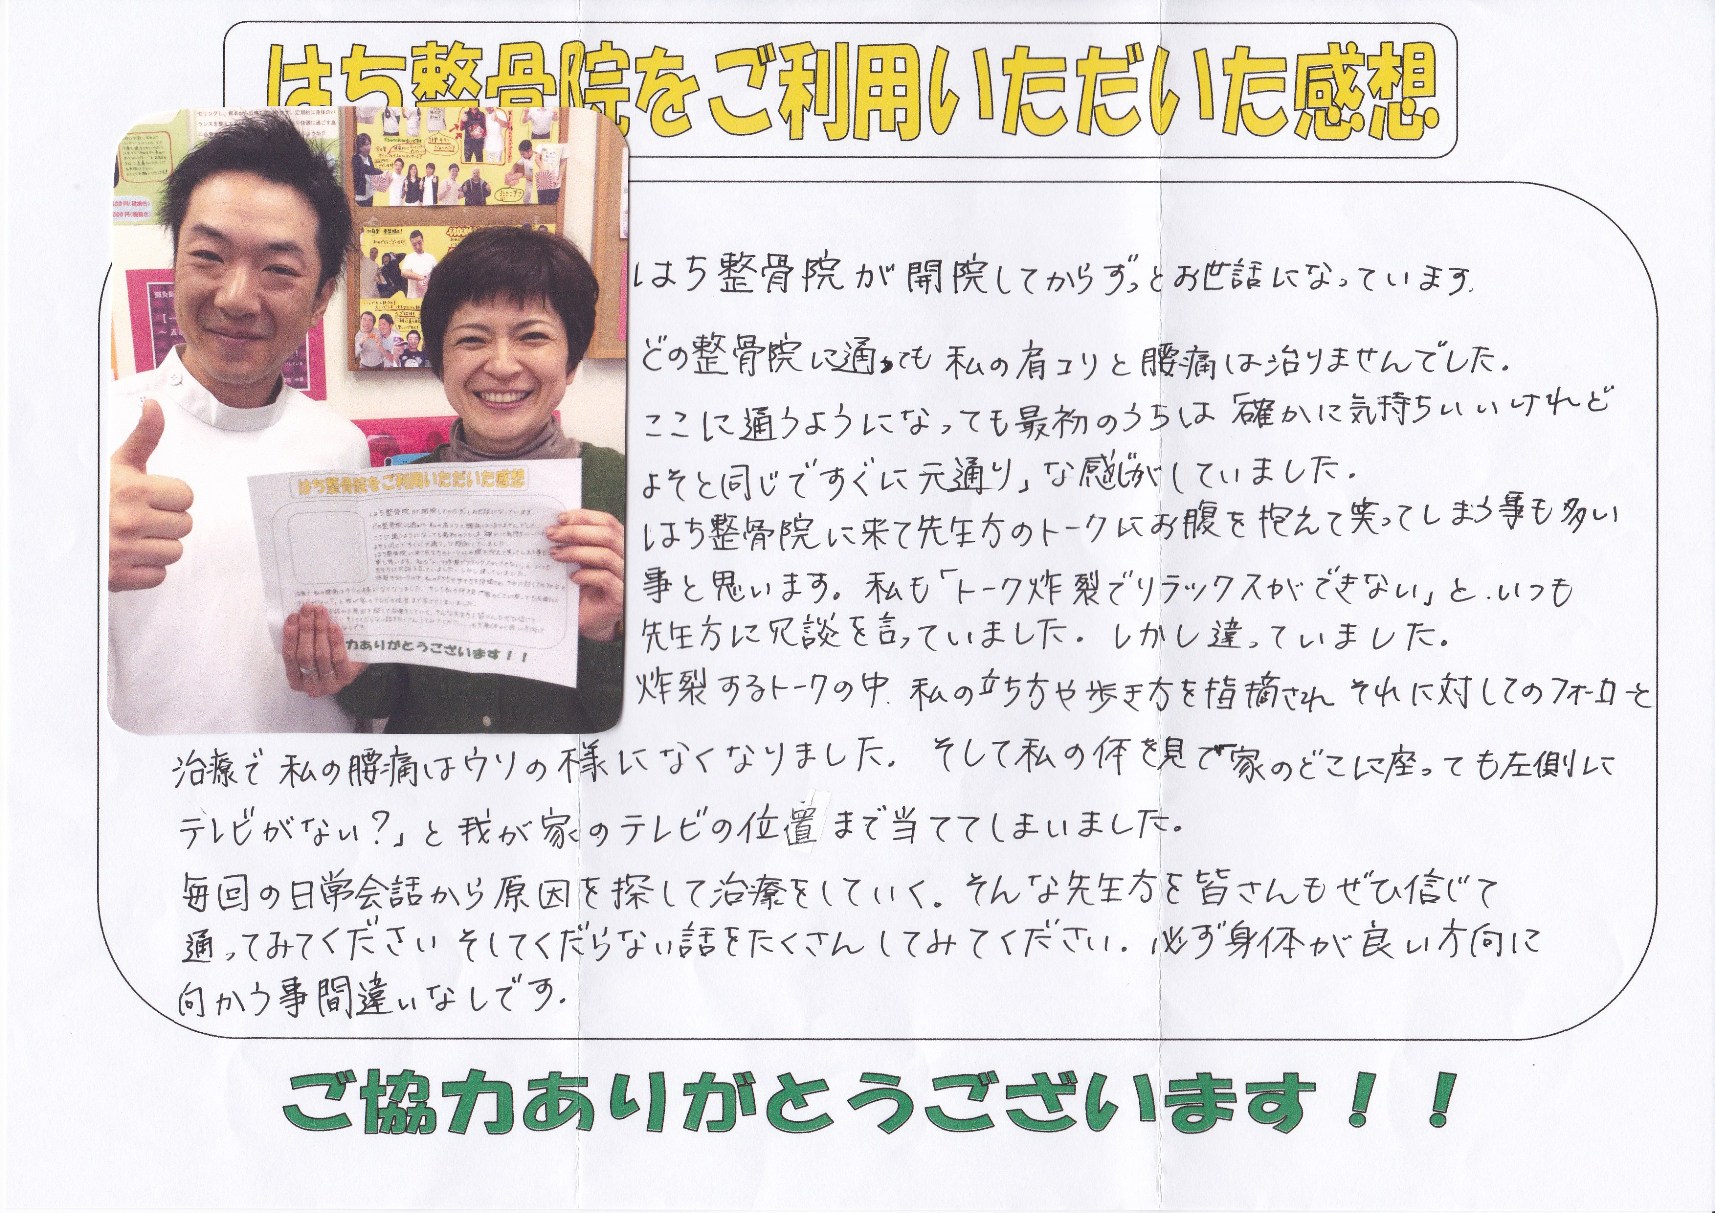 はち整骨院をご利用いただいた感想
はち整骨院が開院してからずっとお世話になっています.
どの整骨院に通っても私の肩コリと腰痛は治りませんでした.
ここに通うようになっても最初のうちは「確かに気持ちいいけれど
よそと同じですぐに元通り」な感じがしていました.
はち整骨院に来て先生方のトークにお腹を抱えて笑ってしまう事も多い
事と思います。私も「トーク炸裂でリラックスができない」と.いつも
先生方に冗談を言っていました. しかし違っていました.
炸裂するトークの中.私の立ち方や歩き方を指摘され それに対してのフォローと
治療で私の腰痛はウソの様になくなりました. そして私の体を見て「家のどこに座っても左側に
テレビがない?」と我が家のテレビの位置まで当ててしまいました。
毎回の日常会話から原因を探して治療をしていく. そんな先生方を皆さんもぜひ信じて
通ってみてください そしてくだらない話をたくさんしてみてください. 必ず身体が良い方向に
向かう事間違いなしです.
ご協力ありがとうございます！！